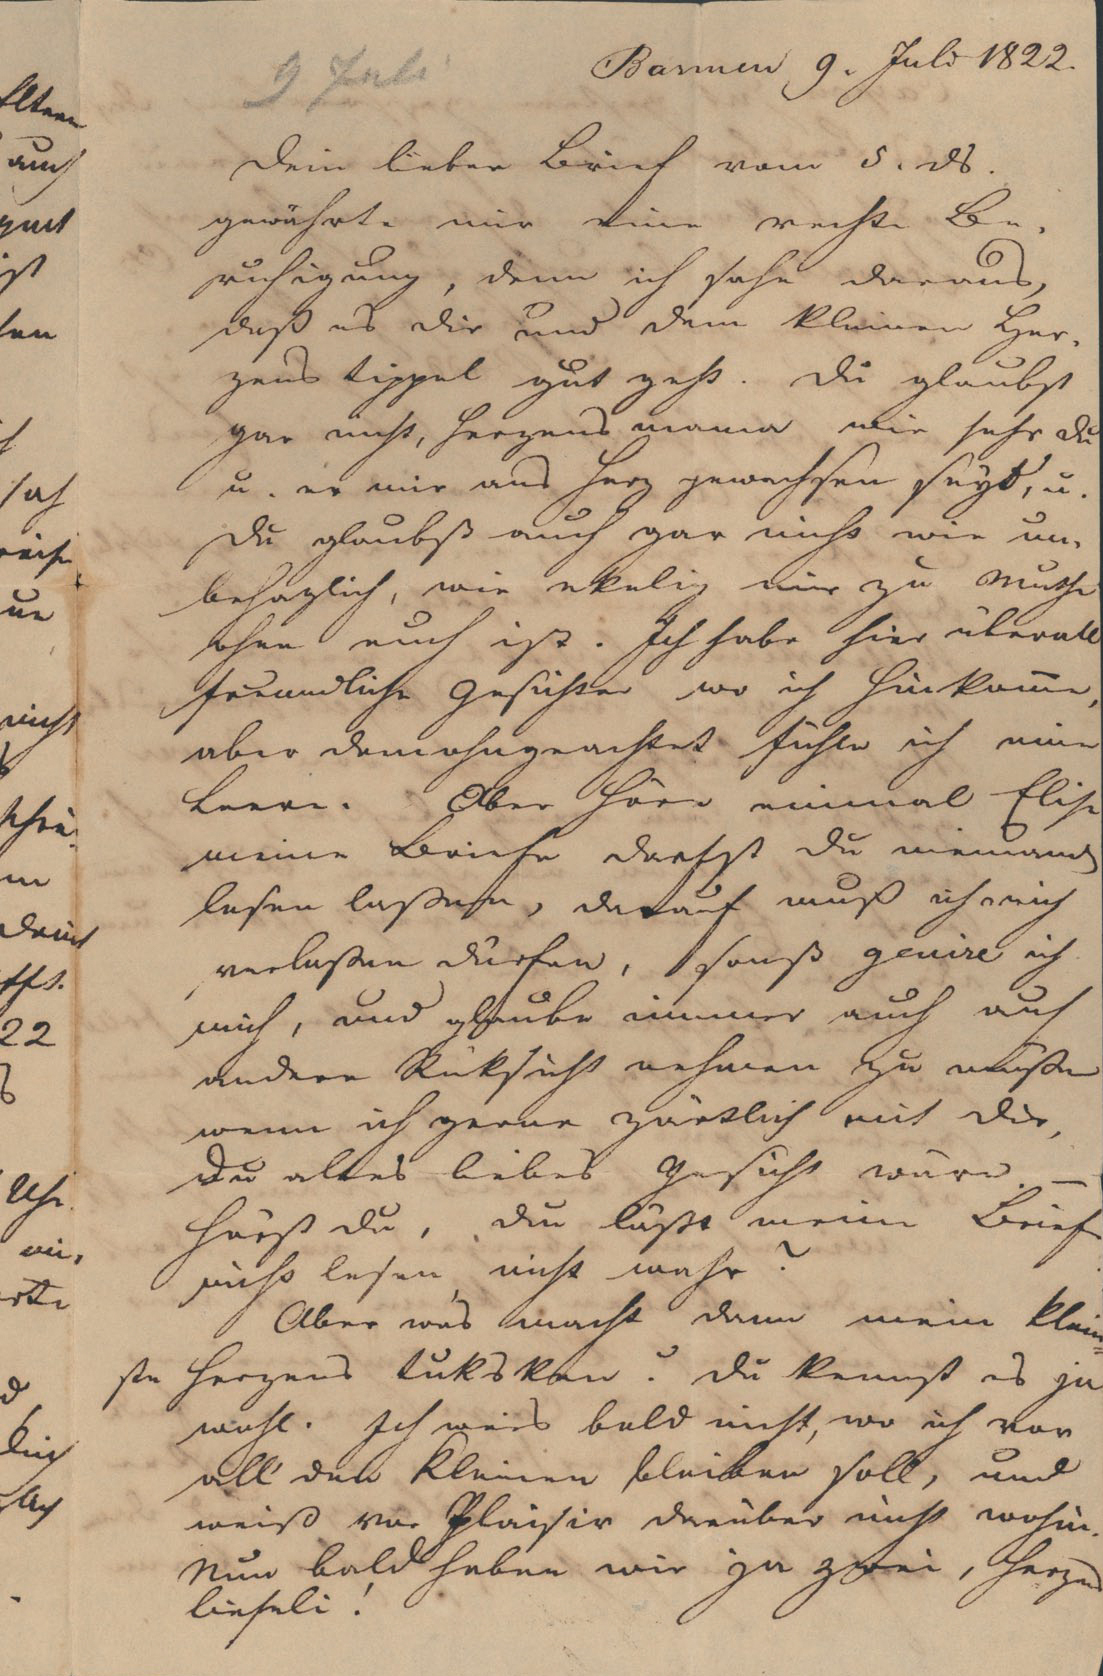 9 Juli
Barmen 9. Juli 1822.
Dein lieber Brief vom 5. ds.
gewährte mir eine rechte Be-
ruhigung, denn ich sahe daraus,
daß es dir und dem kleinen Her-
zens tippel gut geht. Du glaubst
gar nicht, Herzens mama wie sehr du
u. er mir ans Herz gewachsen seyd, u.
Du glaubst auch gar nicht wie un-
behaglich, wie ekelig mir zu Muthe
ohne euch ist. Ich habe hier überall
freundliche Gesichter wo ich hinkome,
aber demohngeachtet fühle ich eine
Leere. Aber höre einmal Elise
meine Briefe darfst du niemand
lesen lassen, darauf muß ich mich
verlassen dürfen, sonst genire ich
mich, und glaube immer auch auf
andere Rüksicht nehmen zu müssen
wenn ich gerne zärtlich mit dir,
Du altes liebes Gesicht wäre. —
Hörst du, du läßt meine Briefe
nicht lesen, nicht wahr?
Aber was macht denn mein klein-
ste Herzens tuksken? Du kennst es ja
wohl. Ich weis bald nicht, wo ich vor
all den kleinen bleiben soll, und
weiß vor Plaisir darüber nicht wohin.
Nun bald haben wir ja zwei, Herzens
lieseli!
Eltern
auch
gut
ist
sah
nicht
22
Uhr